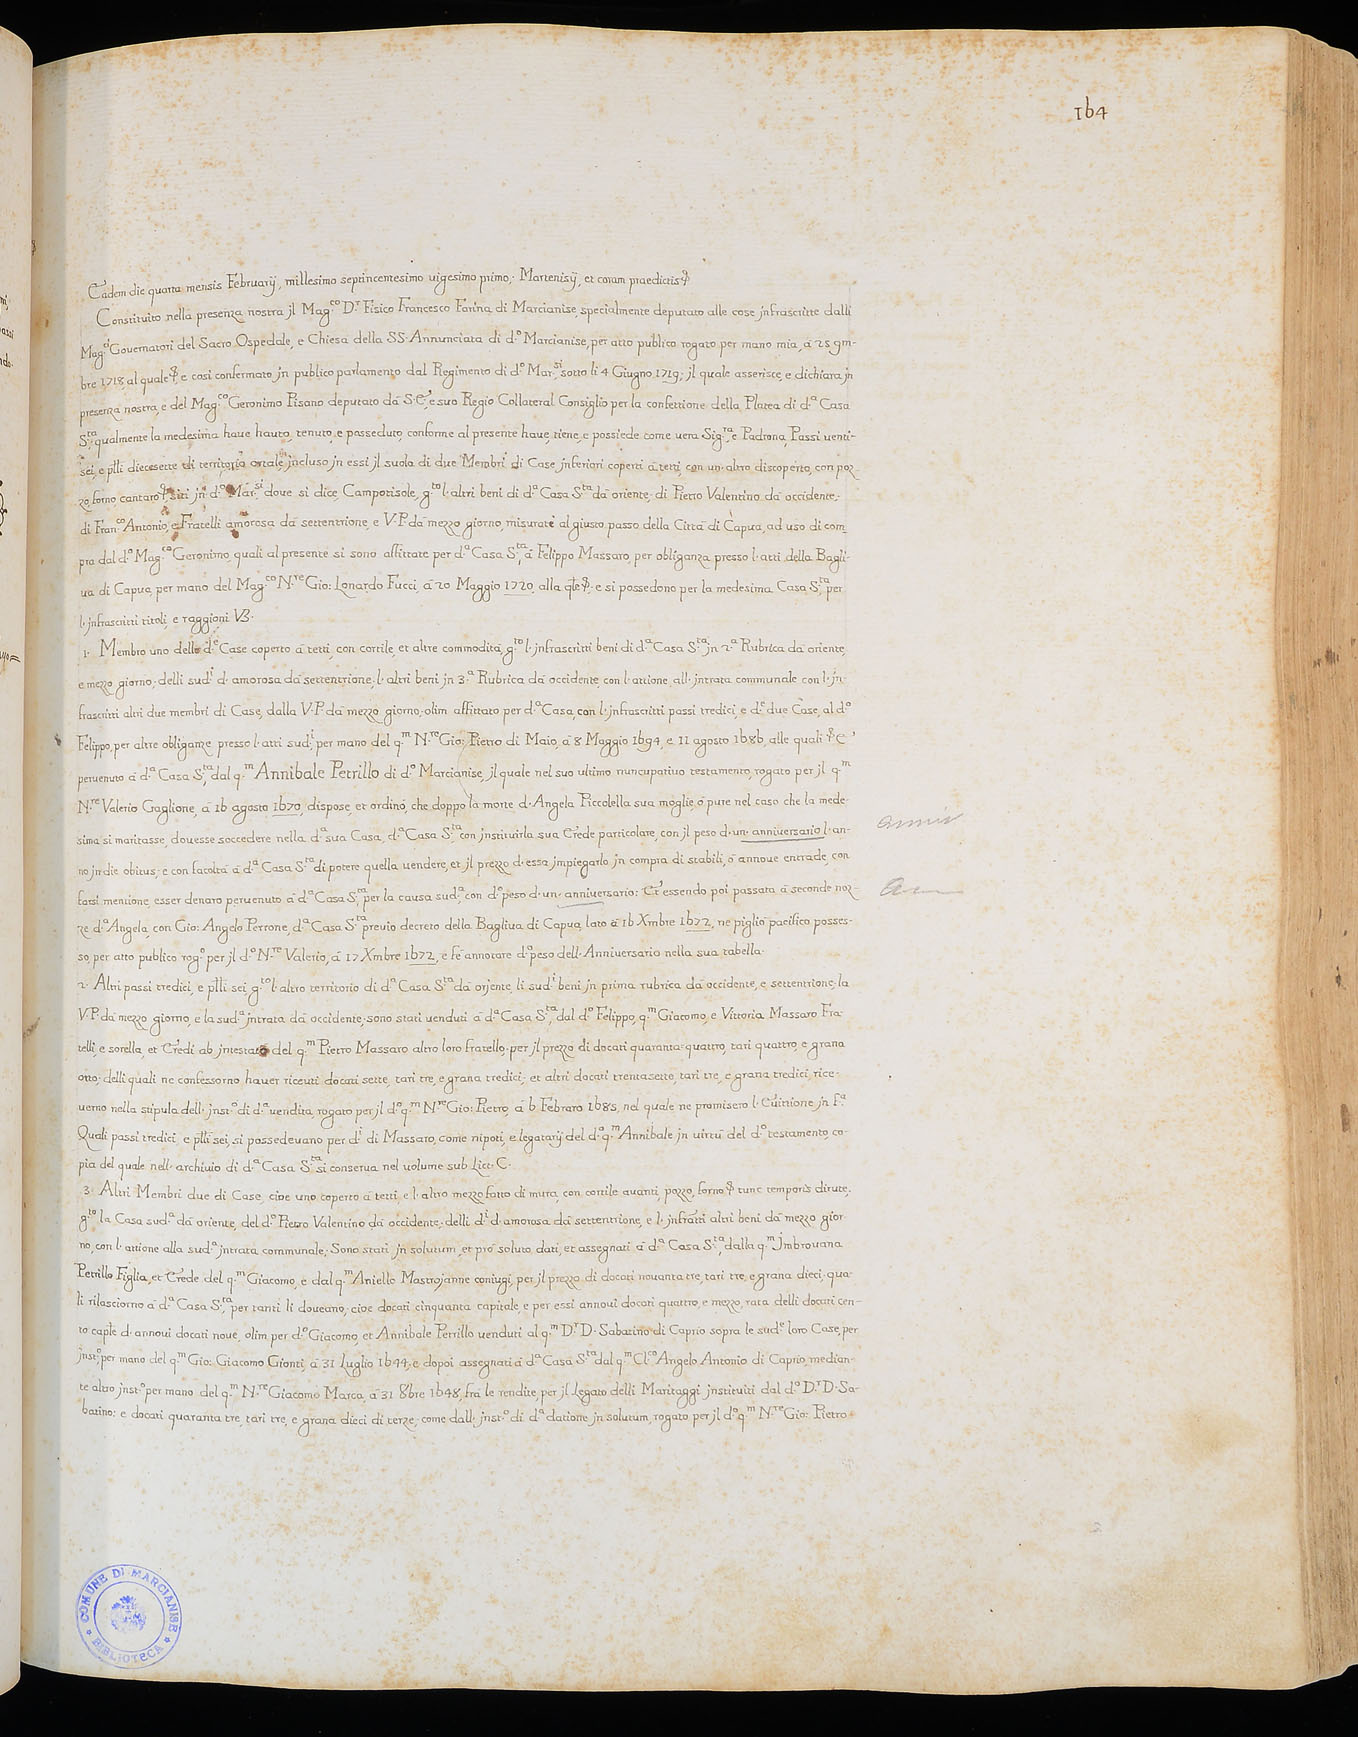 164
Eadem die quarta mensis Februarij, millesimo septincentesimo uigesimo primo; Martenisij, et coram praedictis &
Constituito nella presenza nostra jl Mag.co D.r Fisico Francesco Farina di Marcianise, specialmente deputato alle cose jnfrascritte dalli
Mag.ci Governatori del Sacro Ospedale, e Chiesa della SS. Annunciata di d.o Marcianise, per atto publico rogato per mano mia, à 25 9m-
bre 1718, al quale & e così confermato jn publico parlamento dal Regimento di d.o Mar.si sotto li 4 Giugno 1719; jl quale asserisce, e dichiara jn
presenza nostra, e del Mag.co Geronimo Pisano deputato dà S.E., e suo Regio Collateral Consiglio per la confettione della Platea di d.a Casa
S.ta, qualmente la medesima haue hauto, tenuto, e posseduto, conforme al presente haue, tiene, e possiede come uera Sig.ra, e Padrona, Passi uenti-
sei, e p̃lli diecesette di territorio ortale, jncluso jn essi jl suolo di due Membri di Case jnferiori coperti à tetti, con un altro discoperto, con poz-
zo, forno, cantaro &, siti jn d.o Mar.si doue si dice, Campotisole, g.to l. altri beni di d.a Casa S.ta dà oriente, di Pietro Valentino dà occidente,
di Fran.co Antonio, e Fratelli amorosa dà settentrione, e V.P. dà mezzo giorno, misurate al giusto passo della Città di Càpua, ad uso di com
pra dal d.o Mag.co Geronimo, quali al presente si sono affittate per d.a Casa S.ta, à Felippo Massaro, per obliganza presso l. atti della Bagli-
ua di Capua, per mano del Mag.co N.re Gio: Lonardo Fucci, à 20 Maggio 1720, alla q̃le &. e si possedono per la medesima Casa S.ta, per
l. jnfrascritti titoli, e raggioni VZ.
1. Membro uno delle d.e Case coperto à tetti, con cortile, et altre commodità, g.to l. jnfrascritti beni di d.a Casa S.ta jn 2.a Rubrica dà oriente,
e mezzo giorno, delli sud.i d. amorosa dà settentrione, l. altri beni jn 3.a Rubrica dà occidente, con l. attione, all. jntrata communale con l. jn-
frascritti altri due membri di Case, dalla V.P. dà mezzo giorno, olim affittato per d.a Casa, con l. jnfrascritti passi tredici, e d.e due Case, al d.o
Felippo, per altre obliganze presso l. atti sud.i, per mano del q.m N.re Gio: Pietro di Maio, à 8 Maggio 1694, e 11 agosto 1686, alle quali & E'
peruenuto à d.a Casa S.ta, dal q.m Annibale Petrillo di d.o Marcianise, jl quale nel suo ultimo nuncupatiuo testamento, rogato per jl q.m
N.re Valerio Gaglione, à 16 agosto 1670, dispose, et ordinò, che doppo la morte d. Angela Piccolella sua moglie, ò pure nel caso che la mede-
sima si maritasse, douesse soccedere nella d.a sua Casa, d.a Casa S.ta, con jnstituirla sua Erede particolare, con jl peso d. un. anniuersario l. an-
no jn die obitus, e con facoltà à d.a Casa S.ta di potere quella uendere, et jl prezzo d. essa jmpiegarlo jn compra di stabili, ò annoue entrade, con
farsi mentione, esser denaro peruenuto à d.a Casa S.ta, per la causa sud.a, con d.o peso d. un. anniuersario: Et essendo poi passata à seconde noz-
ze d.a Angela, con Gio: Angelo Perrone, d.a Casa S.ta preuio decreto della Bagliua di Capua, lato à 16 Xmbre 1672, ne pigliò pacifico posses-
so, per atto publico rog.o per jl d.o N.re Valerio, à 17 Xmbre 1672, e fè annotare d.o peso dell. Anniuersario nella sua tabella.
2. Altri passi tredici, e p̃lli sei, g.to l. altro territorio di d.a Casa S.ta dà orjente, li sud.i beni jn prima rubrica dà occidente, e settentrione, la
V.P. dà mezzo giorno, e la sud.a jntrata dà occidente, sono stati uenduti à d.a Casa S.ta, dal d.o Felippo, q.m Giacomo, e Vittoria Massaro Fra-
telli, e sorella, et Eredi ab jntestato del q.m Pietro Massaro altro loro fratello, per jl prezzo di docati quaranta quattro, tarì quattro, e grana
otto; delli quali ne confessorno hauer riceuti docati sette, tarì tre, e grana tredici; et altri docati trentasette, tarì tre, e grana tredici, rice-
uerno nella stipula dell. jnst.o di d.a uendita, rogato per jl d.o q.m N.re Gio: Pietro, à 6 Febraro 1685, nel quale ne promisero l. Euittione jn f.a
Quali passi tredici, e p̃lli sei, si possedeuano per d.i di Massaro, come nipoti, e legatarij del d.o q.m Annibale jn uirtù del d.o testamento, co-
pia del quale nell. archiuio di d.a Casa S.ta si conserua nel uolume sub Litt. C.
3. Altri Membri due di Case, cioe uno coperto à tetti, e l. altro mezzo fatto di mura, con cortile auanti, pozzo, forno & tunc temporis dirute,
g.to la Casa sud.a dà oriente, del d.o Pietro Valentino dà occidente, delli d.i d. amorosa dà settentrione, e l. jnfratti altri beni dà mezzo gior-
no, con l. attione alla sud.a jntrata communale, Sono stati jn solutum, et prò soluto, dati, et assegnati à d.a Casa S.ta, dalla q.m Jmbrouana
Petrillo Figlia, et Erede del q.m Giacomo, e dal q.m Aniello Mastrojanne coniugi, per jl prezzo di docati nouanta tre, tarì tre, e grana dieci, qua-
li rilasciorno à d.a Casa S.ta, per tanti li doueano, cioe docati cinquanta capitale, e per essi annoui docati quattro, e mezzo, rata delli docati cen-
to cap̃le d. annoui docati noue, olim per d.o Giacomo, et Annibale Petrillo uenduti al q.m D.r D. Sabatino di Caprio sopra le sud.e loro Case, per
jnst.o per mano del q.m Gio: Giacomo Gionti, à 31 Luglio 1644, e dopoi assegnati à d.a Casa S.ta dal q.m Cl.co Angelo Antonio di Caprio, median-
te altro jnst.o per mano del q.m N.re Giacomo Marca, à 31 8bre 1648, frà le rendite, per jl Legato delli Maritaggi jnstituiti dal d.o D.r D. Sa-
batino: e docati quaranta tre, tarì tre, e grana dieci di terze; come dall. jnst.o di d.a datione jn solutum, rogato per jl d.o q.m N.re Gio: Pietro
COMUNE DI MARCIANISE
BIBLIOTECA